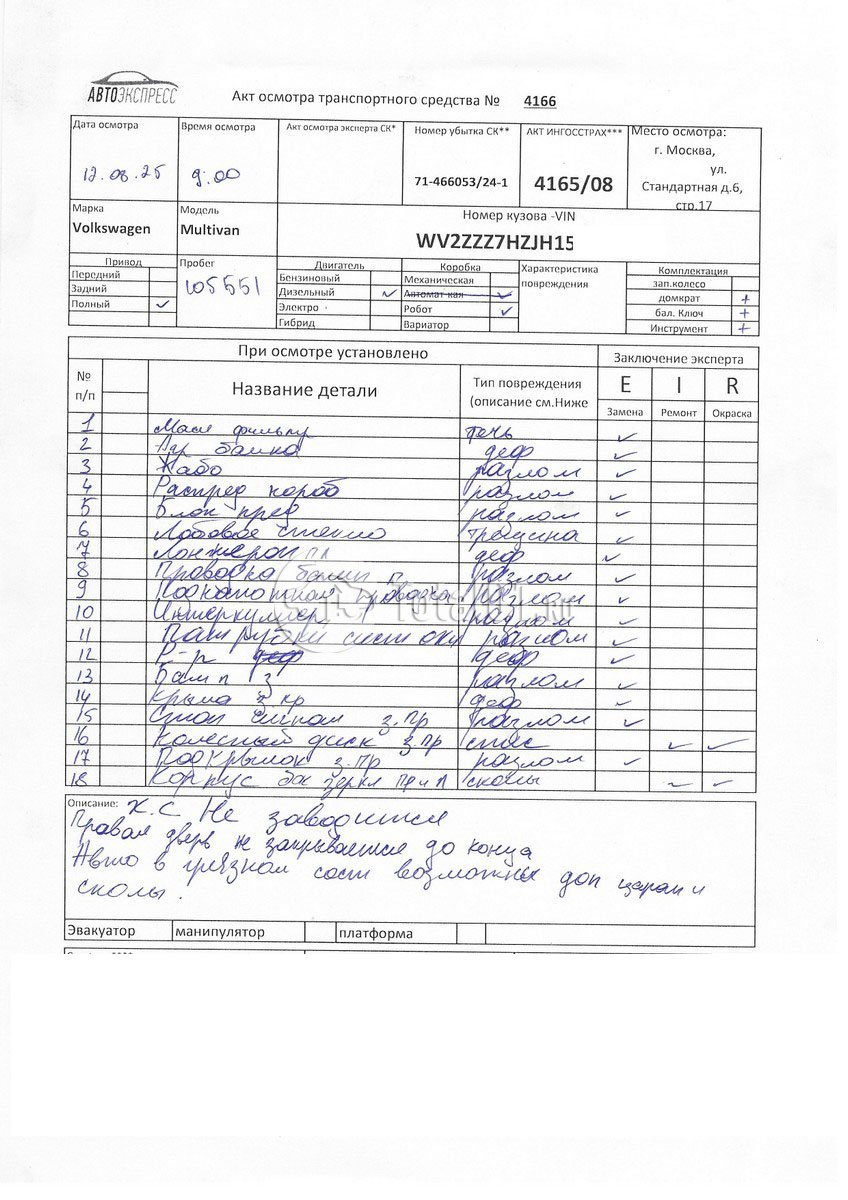 АВТОЭКСПРЕСС
Акт осмотра транспортного средства № 4166
Дата осмотра Время осмотра Акт осмотра эксперта СК* Номер убытка СК** АКТ ИНГОССТРАХ*** Место осмотра:
г. Москва,
ул.
12.08.25 9:00 71-466053/24-1 4165/08 Стандартная д.6,
стр.17
Марка Модель Номер кузова -VIN
Volkswagen Multivan WV2ZZZ7HZJH15
Привод Пробег Двигатель Коробка Характеристика Комплектация
Передний Бензиновый Механическая повреждения зап.колесо
Задний 105551 Дизельный ✓ Автомат-кая ✓ домкрат +
Полный ✓ Электро Робот ✓ бал. Ключ +
Гибрид Вариатор Инструмент +
При осмотре установлено Заключение эксперта
№ п/п Название детали Тип повреждения (описание см.Ниже E I R
Замена Ремонт Окраска
1 Масл фильтр течь ✓
2 Агр банка деф ✓
3 Жабо разлом ✓
4 Распред короб разлом ✓
5 Блок пред разлом ✓
6 Лобовое стекло трещина ✓
7 Лонжерон пл деф ✓
8 Проводка бамп п разлом ✓
9 Подкапотная проводка разлом ✓
10 Интеркуллер разлом ✓
11 Патрубки сист охл разлом ✓
12 Р-р деф деф ✓
13 Бамп з разлом ✓
14 Крыло з пр деф ✓
15 Стоп сигнал з.пр разлом ✓
16 Колесный диск з.пр спас ✓ ✓
17 Подкрылок з.пр разлом ✓
18 Корпус бок зеркл пр и л сколы ✓ ✓
Описание: Х.С Не заводится
Правая дверь не закрывается до конца
Авто в грязном сост возможны доп царап и
сколы.
Эвакуатор манипулятор платформа
Total01.ru